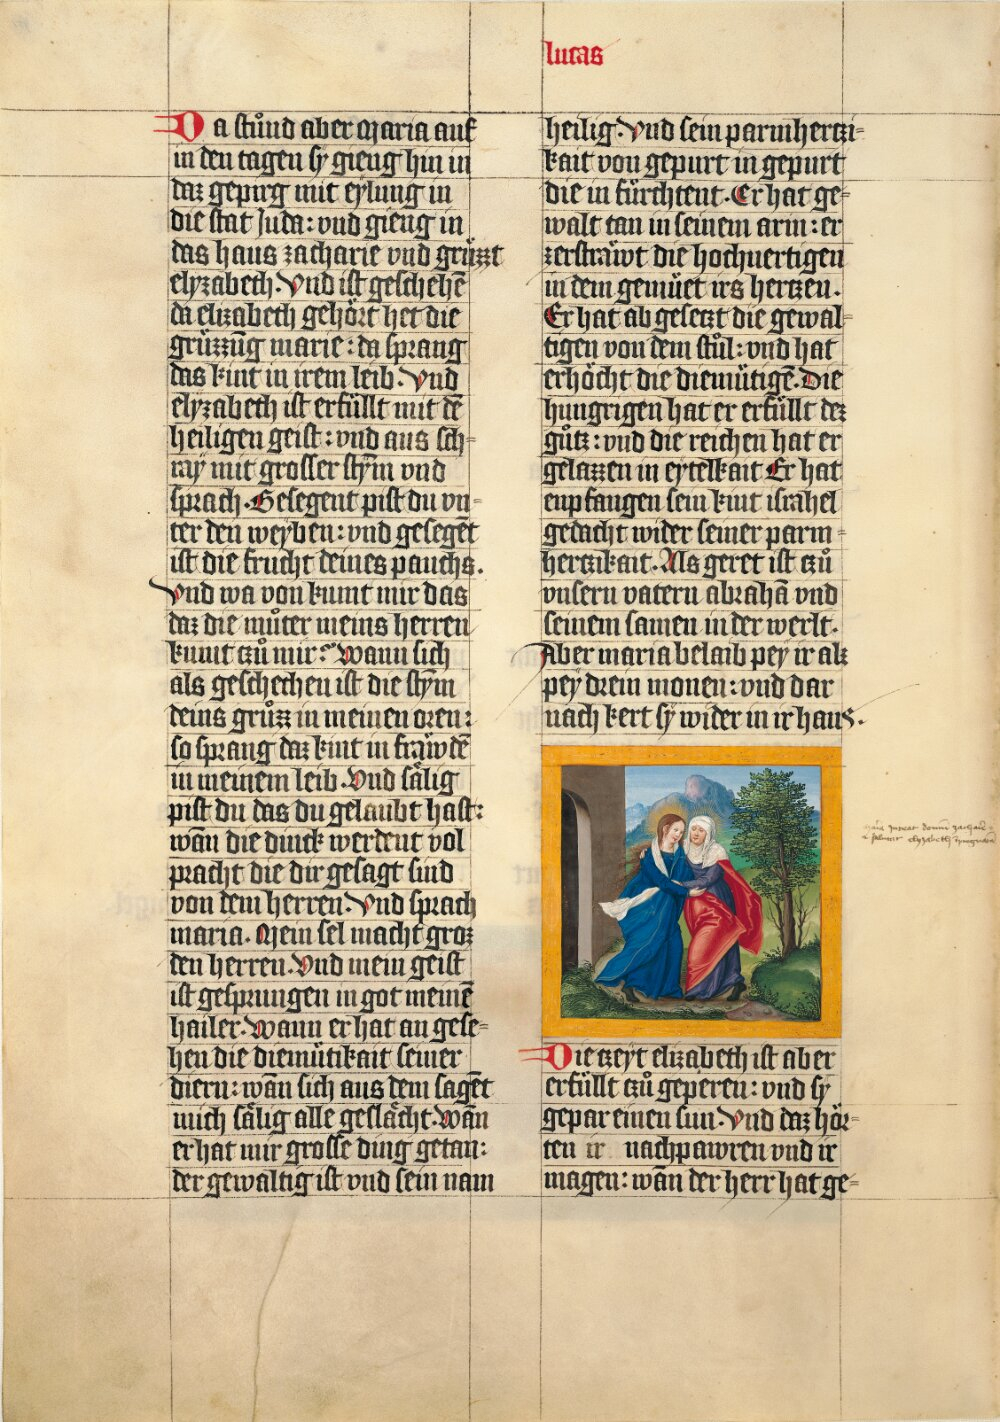 lucas
Da stůnd aber maria auf
in den tagen sy gieng hin in
daz gepirg mit eylung in
die stat Juda: vnd gieng in
das haus zacharie vnd grůzzt
elyzabeth. Vnd ist geschehē
da elizabeth gehört het die
grüzzūg marie: da sprang
das kint in irem leib. Vnd
elyzabeth ist erfüllt mit dē
heiligen geist: vnd aus sch=
ray mit grosser stym vnd
sprach. Gesegent pist du vn=
ter den weyben: vnd gesegēt
ist die frucht deines pauchs.
Vnd wa von kumt mir das
daz die můter meins herren
kumt czů mir? Wann sich
als geschechen ist die stym
deins grůzz in meinen oren:
so sprang daz kint in fräwdē
in meinem leib. Vnd sälig
pist du das du gelaubt hast:
wān die dinck werdent vol
pracht die dir gesagt sind
von dem herren. Vnd sprach
maria. Mein sel macht groz
den herren. Vnd mein geist
ist gesprungen in got meinē
hailer. Wann er hat an gese=
hen die diemütikait seiner
diern: wān sich aus dem sagēt
mich sälig alle geslächt. Wān
er hat mir grosse ding getan:
der gewaltig ist vnd sein nam
heilig. Vnd sein parmherczi=
kait von gepurt in gepurt
die in fürchtent. Er hat ge=
walt tan in seinem arm: er
zersträwt die hochuertigen
in dem gemüet irs herczen.
Er hat ab geseczt die gewal=
tigen von dem stůl: vnd hat
erhöcht die diemütigē. Die
hungrigen hat er erfüllt dez
gůtz: vnd die reichen hat er
gelazzen in eytelkait Er hat
enpfangen sein kint israhel
gedacht wider seiner parm=
herczikait. Als geret ist czů
vnsern vatern abrahā vnd
seinem samen in der werlt.
Aber maria belaib pey ir alz
pey drein monen: vnd dar
nach kert sy wider in ir haus.
Die czeyt elizabeth ist aber
erfüllt czů geperen: vnd sy
gepar einen sun. Vnd daz hör=
ten ir nachpawren vnd ir
magen: wān der herr hat ge=